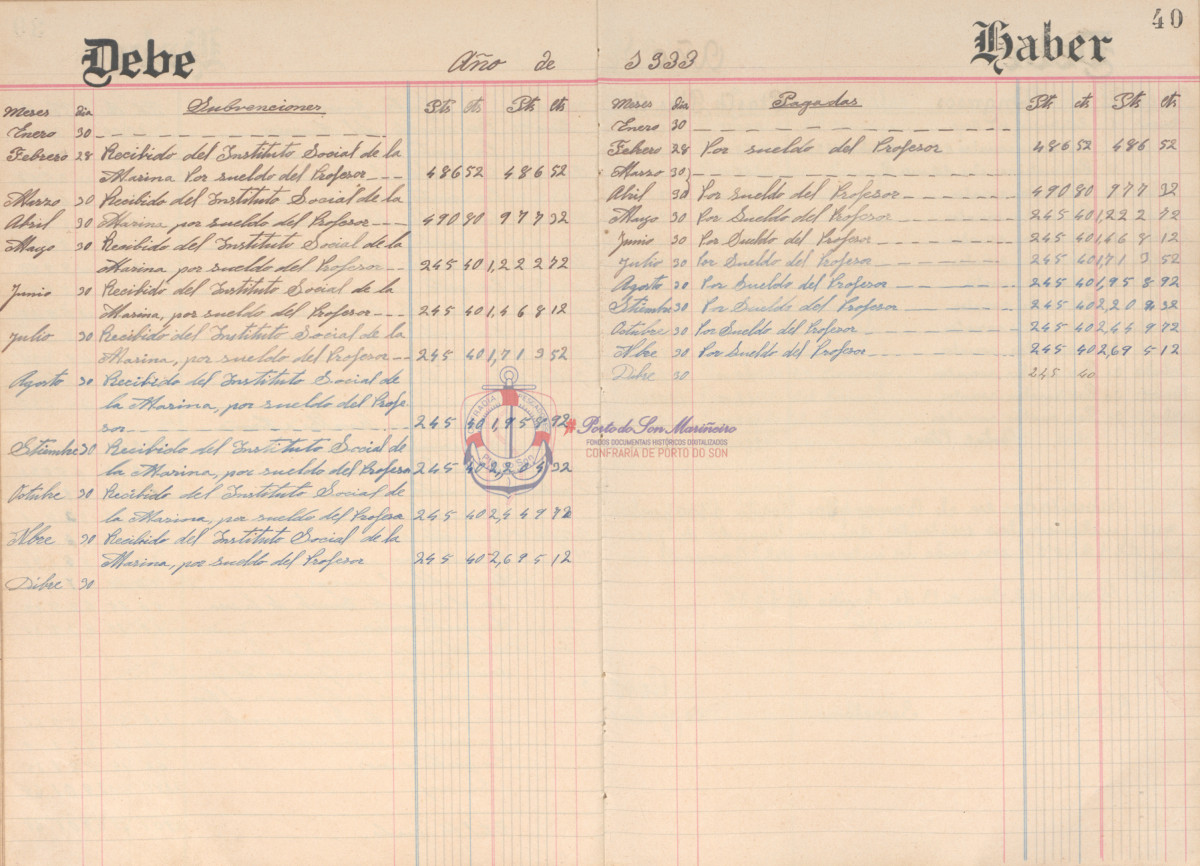 40
Debe Año de 1933 Haber
Meses Dia Subvenciones Pts cts Pts cts
Enero 30
Febrero 28 Recibido del Instituto Social de la
Marina Por sueldo del Profesor 486 52 486 52
Marzo 30 Recibido del Instituto Social de la
Abril 30 Marina por sueldo del Profesor 490 80 977 32
Mayo 30 Recibido del Instituto Social de la
Marina, por sueldo del Profesor 245 40 1,222 72
Junio 30 Recibido del Instituto Social de la
Marina, por sueldo del Profesor 245 40 1,468 12
Julio 30 Recibido del Instituto Social de la
Marina, por sueldo del Profesor 245 40 1,713 52
Agosto 30 Recibido del Instituto Social de
la Marina, por sueldo del Profe-
sor 245 40 1,958 92
Stiembre 30 Recibido del Instituto Social de
la Marina, por sueldo del Profesor 245 40 2,204 32
Octubre 30 Recibido del Instituto Social de
la Marina, por sueldo del Profesor 245 40 2,449 72
Nbre 30 Recibido del Instituto Social de la
Marina, por sueldo del Profesor 245 40 2,695 12
Dibre 30
Meses Dia Pagadas Pts cts Pts cts
Enero 30
Febrero 28 Por sueldo del Profesor 486 52 486 52
Marzo 30
Abril 30 Por Sueldo del Profesor 490 80 977 32
Mayo 30 Por Sueldo del Profesor 245 40 1,222 72
Junio 30 Por Sueldo del Profesor 245 40 1,468 12
Julio 30 Por Sueldo del Profesor 245 40 1,713 52
Agosto 30 Por Sueldo del Profesor 245 40 1,958 92
Stiembre 30 Por Sueldo del Profesor 245 40 2,204 32
Octubre 30 Por Sueldo del Profesor 245 40 2,449 72
Nbre 30 Por Sueldo del Profesor 245 40 2,695 12
Dibre 30 245 40
#Porto do Son Mariñeiro
FONDOS DOCUMENTAIS HISTÓRICOS DIXITALIZADOS
CONFRARÍA DE PORTO DO SON